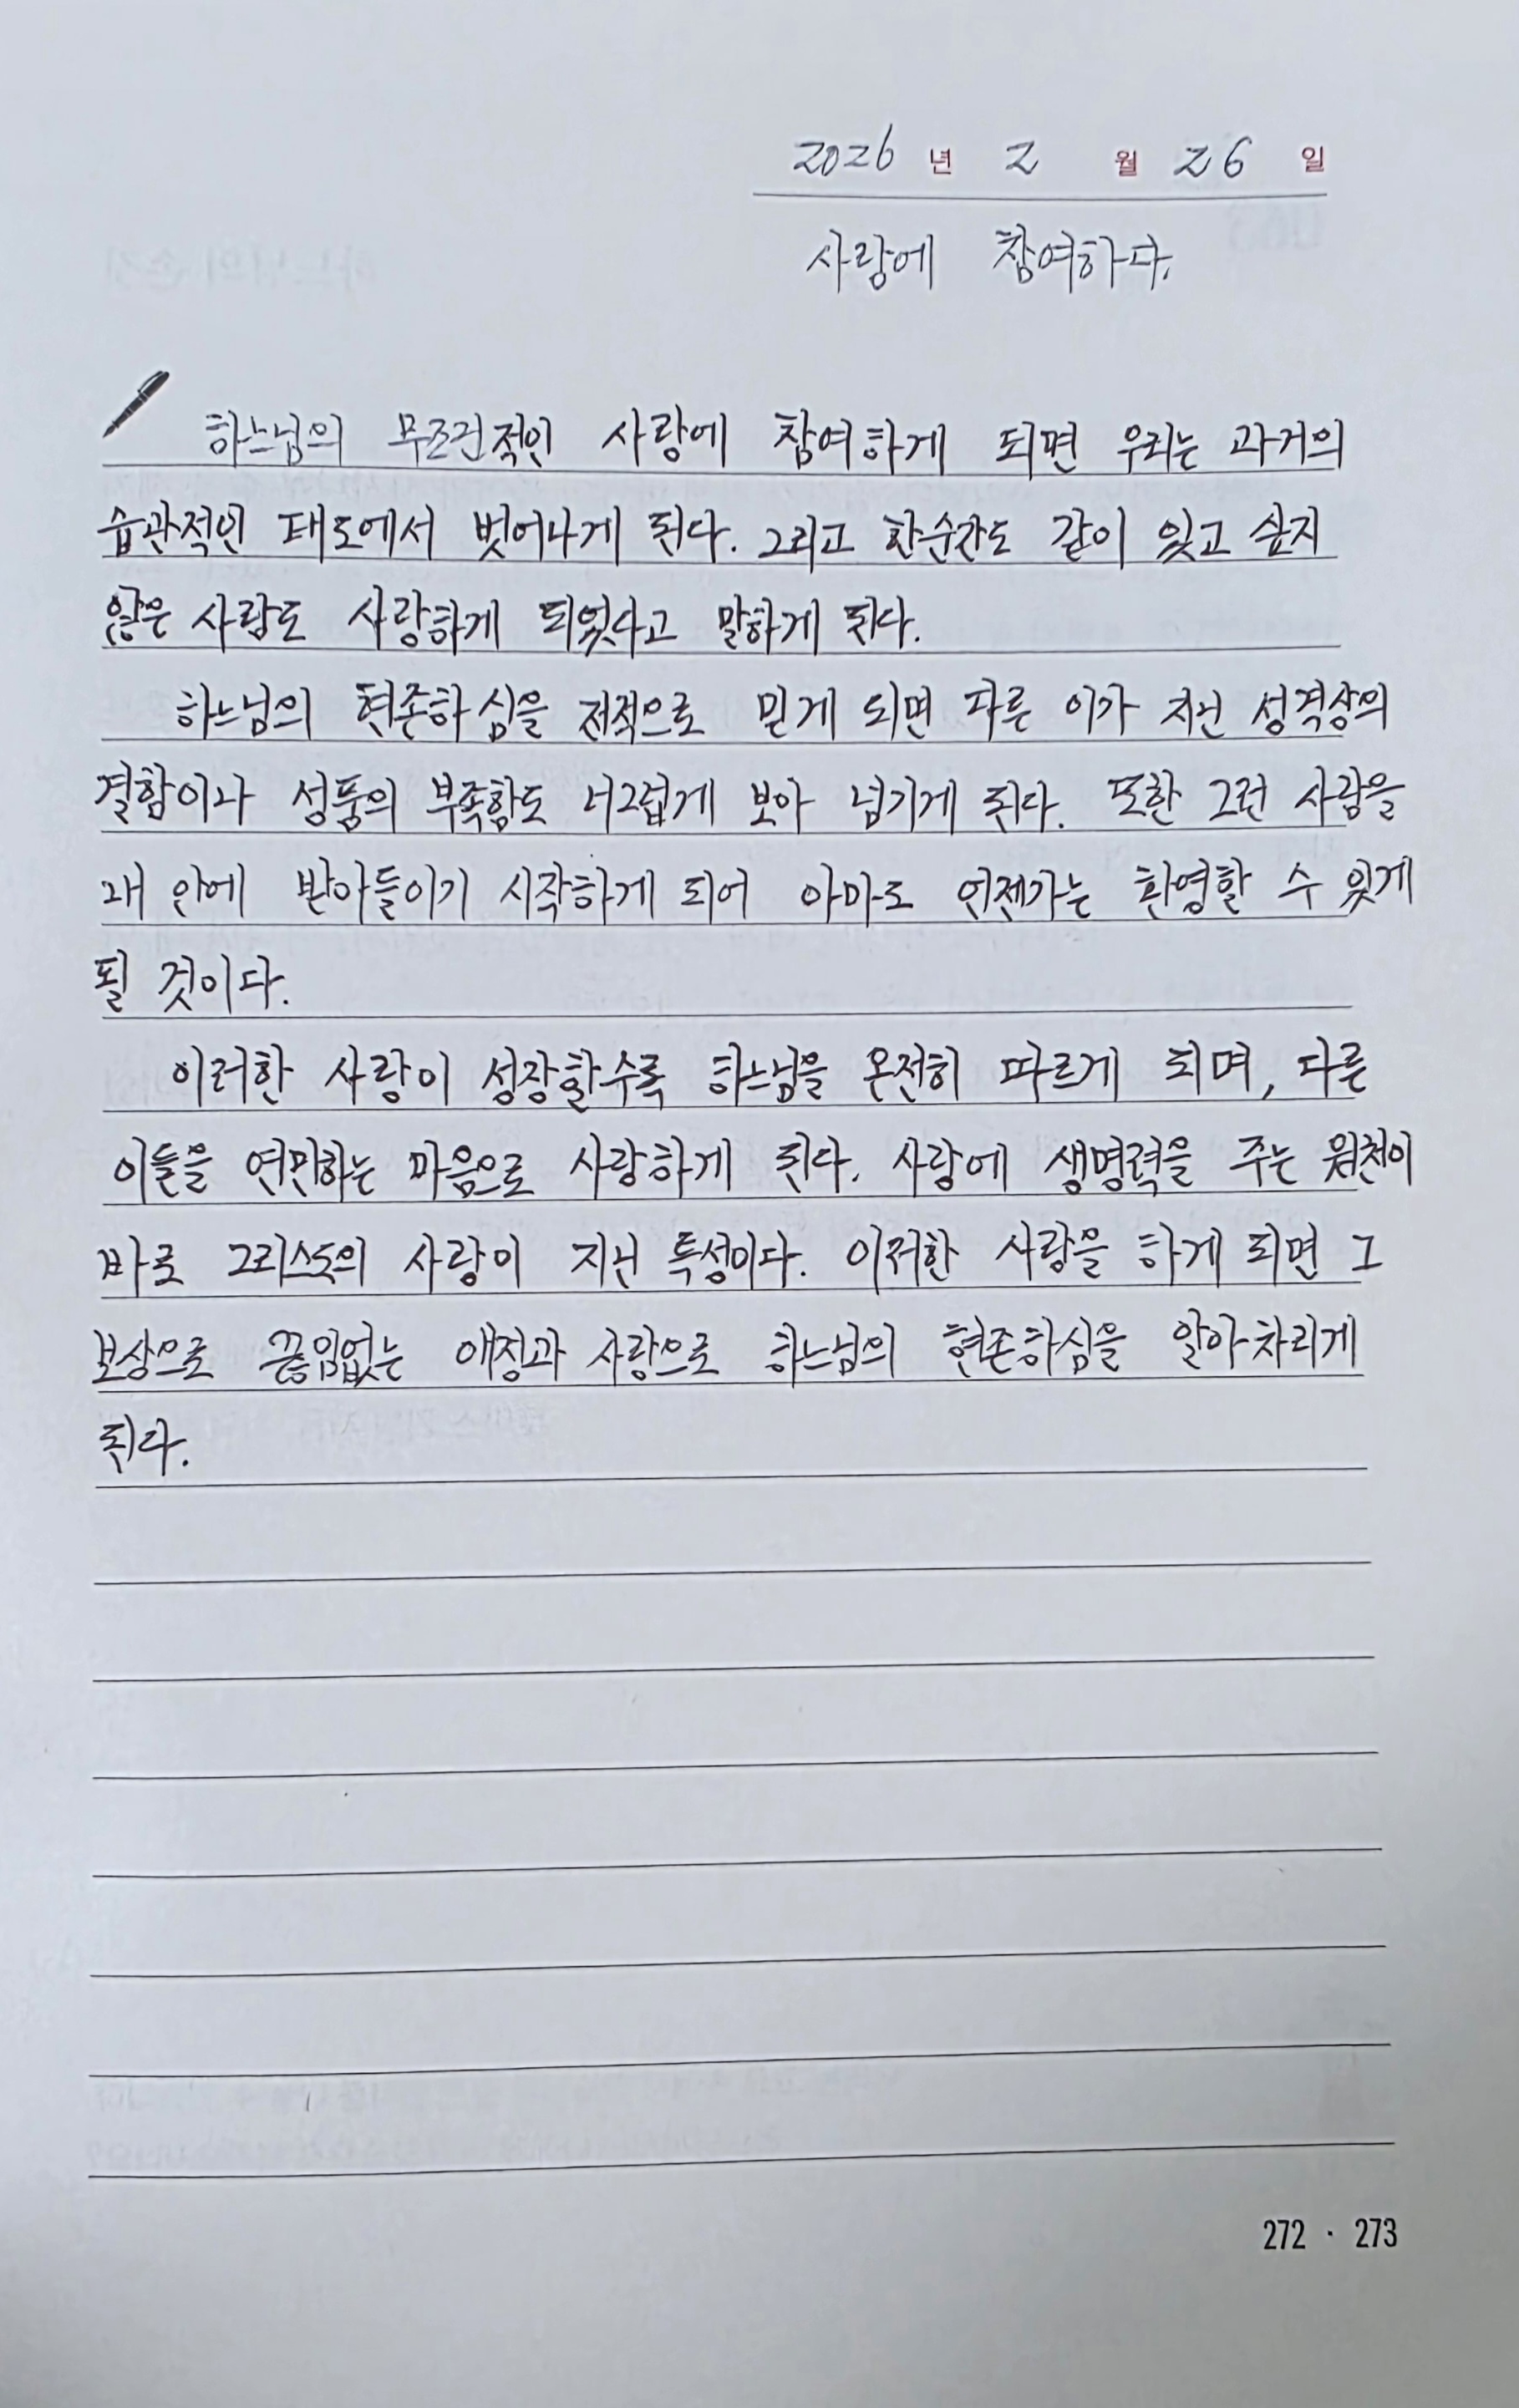 2026 년 2 월 26 일
사랑에 참여하다.
하느님의 무조건적인 사랑에 참여하게 되면 우리는 과거의
습관적인 태도에서 벗어나게 된다. 그리고 한순간도 같이 있고 싶지
않은 사람도 사랑하게 되었다고 말하게 된다.
하느님의 현존하심을 전적으로 믿게 되면 다른 이가 지닌 성격상의
결함이나 성품의 부족함도 너그럽게 보아 넘기게 된다. 또한 그런 사람을
내 안에 받아들이기 시작하게 되어 아마도 언젠가는 환영할 수 있게
될 것이다.
이러한 사랑이 성장할수록 하느님을 온전히 따르게 되며, 다른
이들을 연민하는 마음으로 사랑하게 된다. 사랑에 생명력을 주는 원천이
바로 그리스도의 사랑이 지닌 특성이다. 이러한 사랑을 하게 되면 그
보상으로 끊임없는 애정과 사랑으로 하느님의 현존하심을 알아차리게
된다.
272 · 273